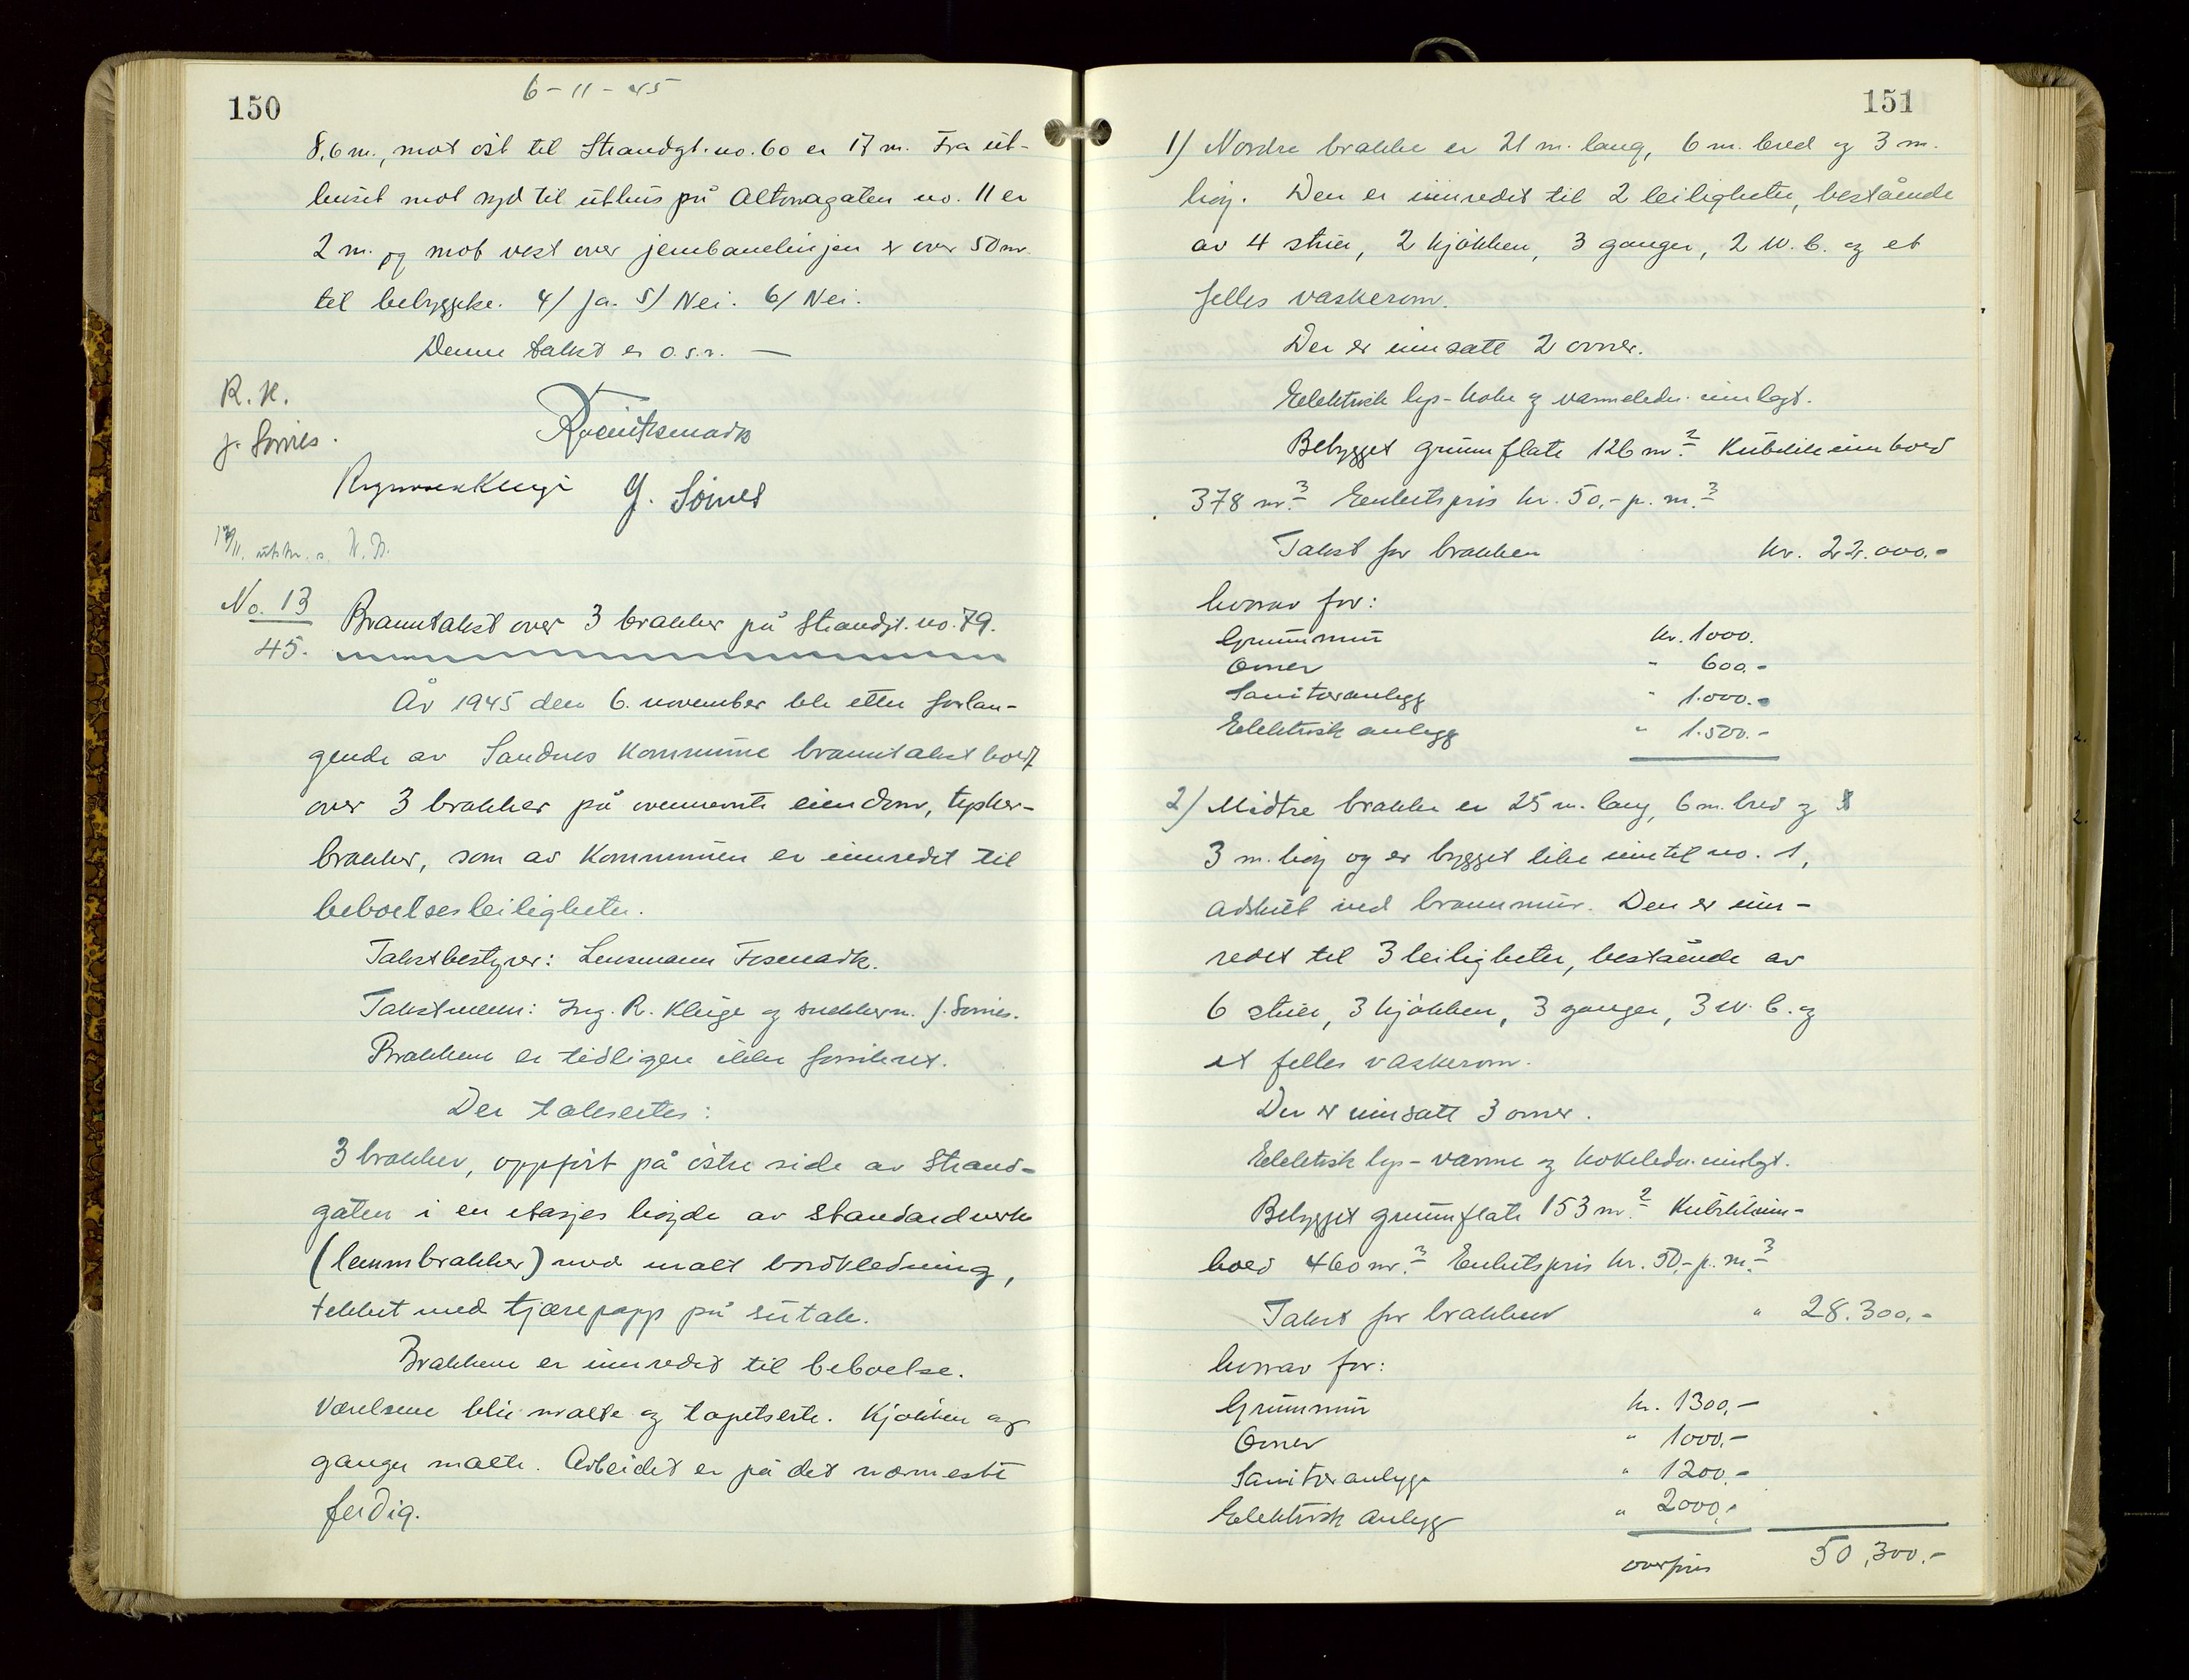 150
6-11-45
8,6 m., mot øst til Strandgt. no. 60 er 17 m. Fra ut-
huset mot syd til uthus på Altonagaten no. 11 er
2 m. og mot vest over jernbanelinjen er over 50 m.
til bebyggelse. 4/ Ja. 5/ Nei. 6/ Nei.
Denne takst er o.s.v. —
R. K.
J. Somes.
G. Soines
utskr. s.
No. 13
45.
Branntakst over 3 brakker på Strandgt. no. 79.
År 1945 den 6. november ble etter forlan-
gende av Sandnes Kommune branntakst holdt
over 3 brakker på ovennevnte eiendom, tysker-
brakker, som av Kommunen er innredet til
beboelsesleiligheter.
Takstbestyrer: Lensmann
Takstmenn: Ing. R. Kluge og snekkerm. J. Somes.
Brakkene er tidligere ikke forsikret.
Der takseres:
3 brakker, oppført på østre side av Strand-
gaten i en etasjes høyde av standardverk
(lemmbrakker) med malt bordkledning,
tekket med tjærepapp på sutak.
Brakkene er innredet til beboelse.
Værelsene blir malte og tapetserte. Kjøkken og
ganger malte. Arbeidet er på det nærmeste
ferdig.
151
1) Nordre brakke er 21 m. lang, 6 m. bred og 3 m.
høy. Den er innredet til 2 leiligheter, bestående
av 4 stuer, 2 kjøkken, 3 ganger, 2 W.C. og et
felles vaskerom.
Der er innsatt 2 ovner.
Elektrisk lys- koke og varmeledn. innlagt.
Bebygget grunnflate 126 m.² Kubikkinnhold
378 m.³ Enhetspris kr. 50,- p. m.³
Takst for brakken kr. 22.000.-
hvorav for:
Grunnmur kr. 1000.
Ovner " 600.-
Sanitæranlegg " 1.000.-
Elektrisk anlegg " 1.500.-
2) Midtre brakke er 25 m. lang, 6 m. bred og
3 m. høy og er bygget like inntil no. 1,
adskilt ved brannmur. Den er inn-
redet til 3 leiligheter, bestående av
6 stuer, 3 kjøkken, 3 ganger, 3 W.C. og
et felles vaskerom.
Der er innsatt 3 ovner.
Elektrisk lys- varme og kokeledn. innlagt.
Bebygget grunnflate 153 m.² Kubikkinn-
hold 460 m.³ Enhetspris kr. 50,- p. m.³
Takst for brakken " 28.300,-
hvorav for:
Grunnmur kr. 1300,-
Ovner " 1000,-
Sanitæranlegg " 1200.-
Elektrisk anlegg " 2000,-
overføres 50,300.-